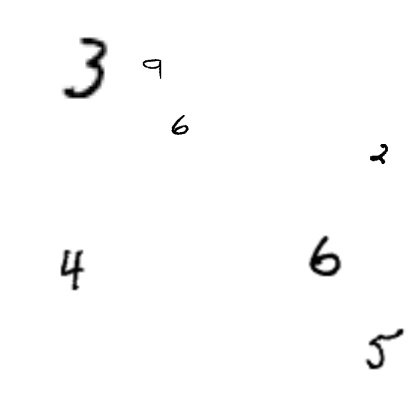 3 9
6
2
4 6
5